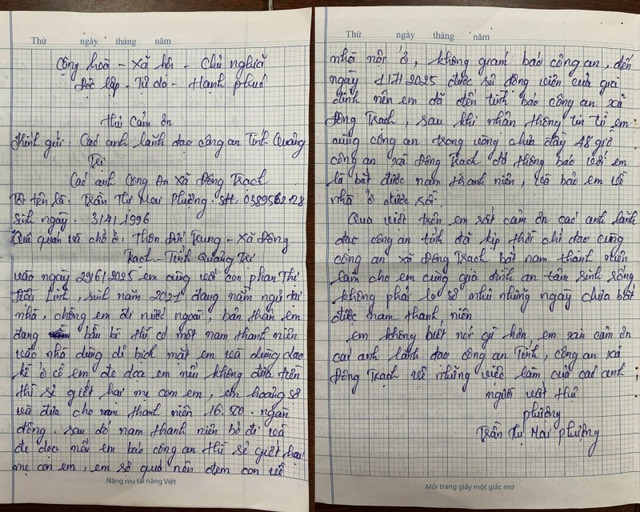 Thứ ngày tháng năm
Cộng hoà - Xã hội - Chủ nghĩa
Độc lập - Tự do - Hạnh phúc
Thư Cảm ơn
Kính gửi: Các anh lãnh đạo công an Tỉnh Quảng
Trị
Các anh Công An Xã Đông Trạch
Tôi tên là: Trần Thị Mai Phương. SĐT:
Sinh ngày: 3/4/1996
Quê quán và chỗ ở: Thôn Đức Trung - Xã Đông
Trạch - Tỉnh Quảng Trị
vào ngày 29/6/2025 em cùng với con phan Thị
Linh, sinh năm 2021 đang nằm ngủ tại
nhà, chồng em đi nước ngoài, bản thân em
đang bầu bì thì có một nam thanh niên
vào nhà dùng dị bịch mặt em và dùng dao
kề ở cổ em đe doạ em nếu không đưa tiền
thì sẽ giết hai mẹ con em, em hoảng sợ
và đưa cho nam thanh niên 16.500. ngàn
đồng. sau đó nam thanh niên bỏ đi và
đe dọa nếu em báo công an thì sẽ giết hai
mẹ con em, em sợ quá nên đem con về
Nâng niu tài năng Việt
Thứ ngày tháng năm
nhà nội ở, không giám báo công an, đến
ngày 11/7/2025 được sự động viên của gia
đình nên em đã đến trình báo công an xã
Đông Trạch, sau khi nhận thông tin từ em
cũng công an trong vòng chưa đầy 48 giờ
công an xã Đông Trạch đã thông báo với em
là bắt được nam thanh niên, và bảo em về
nhà ở được rồi.
Qua việc trên em rất cảm ơn các anh lãnh
đạo công an tỉnh đã kịp thời chỉ đạo cùng
công an xã Đông Trạch bắt nam thanh niên
làm cho em cùng gia đình an tâm sinh sống
không phải lo sợ như những ngày chưa bắt
được nam thanh niên
em không biết nói gì hơn em xin cảm ơn
các anh lãnh đạo công an Tỉnh, công an xã
Đông Trạch về những việc làm của các anh
người viết thư
phương
Trần Thị Mai Phương
Mỗi trang giấy một giấc mơ